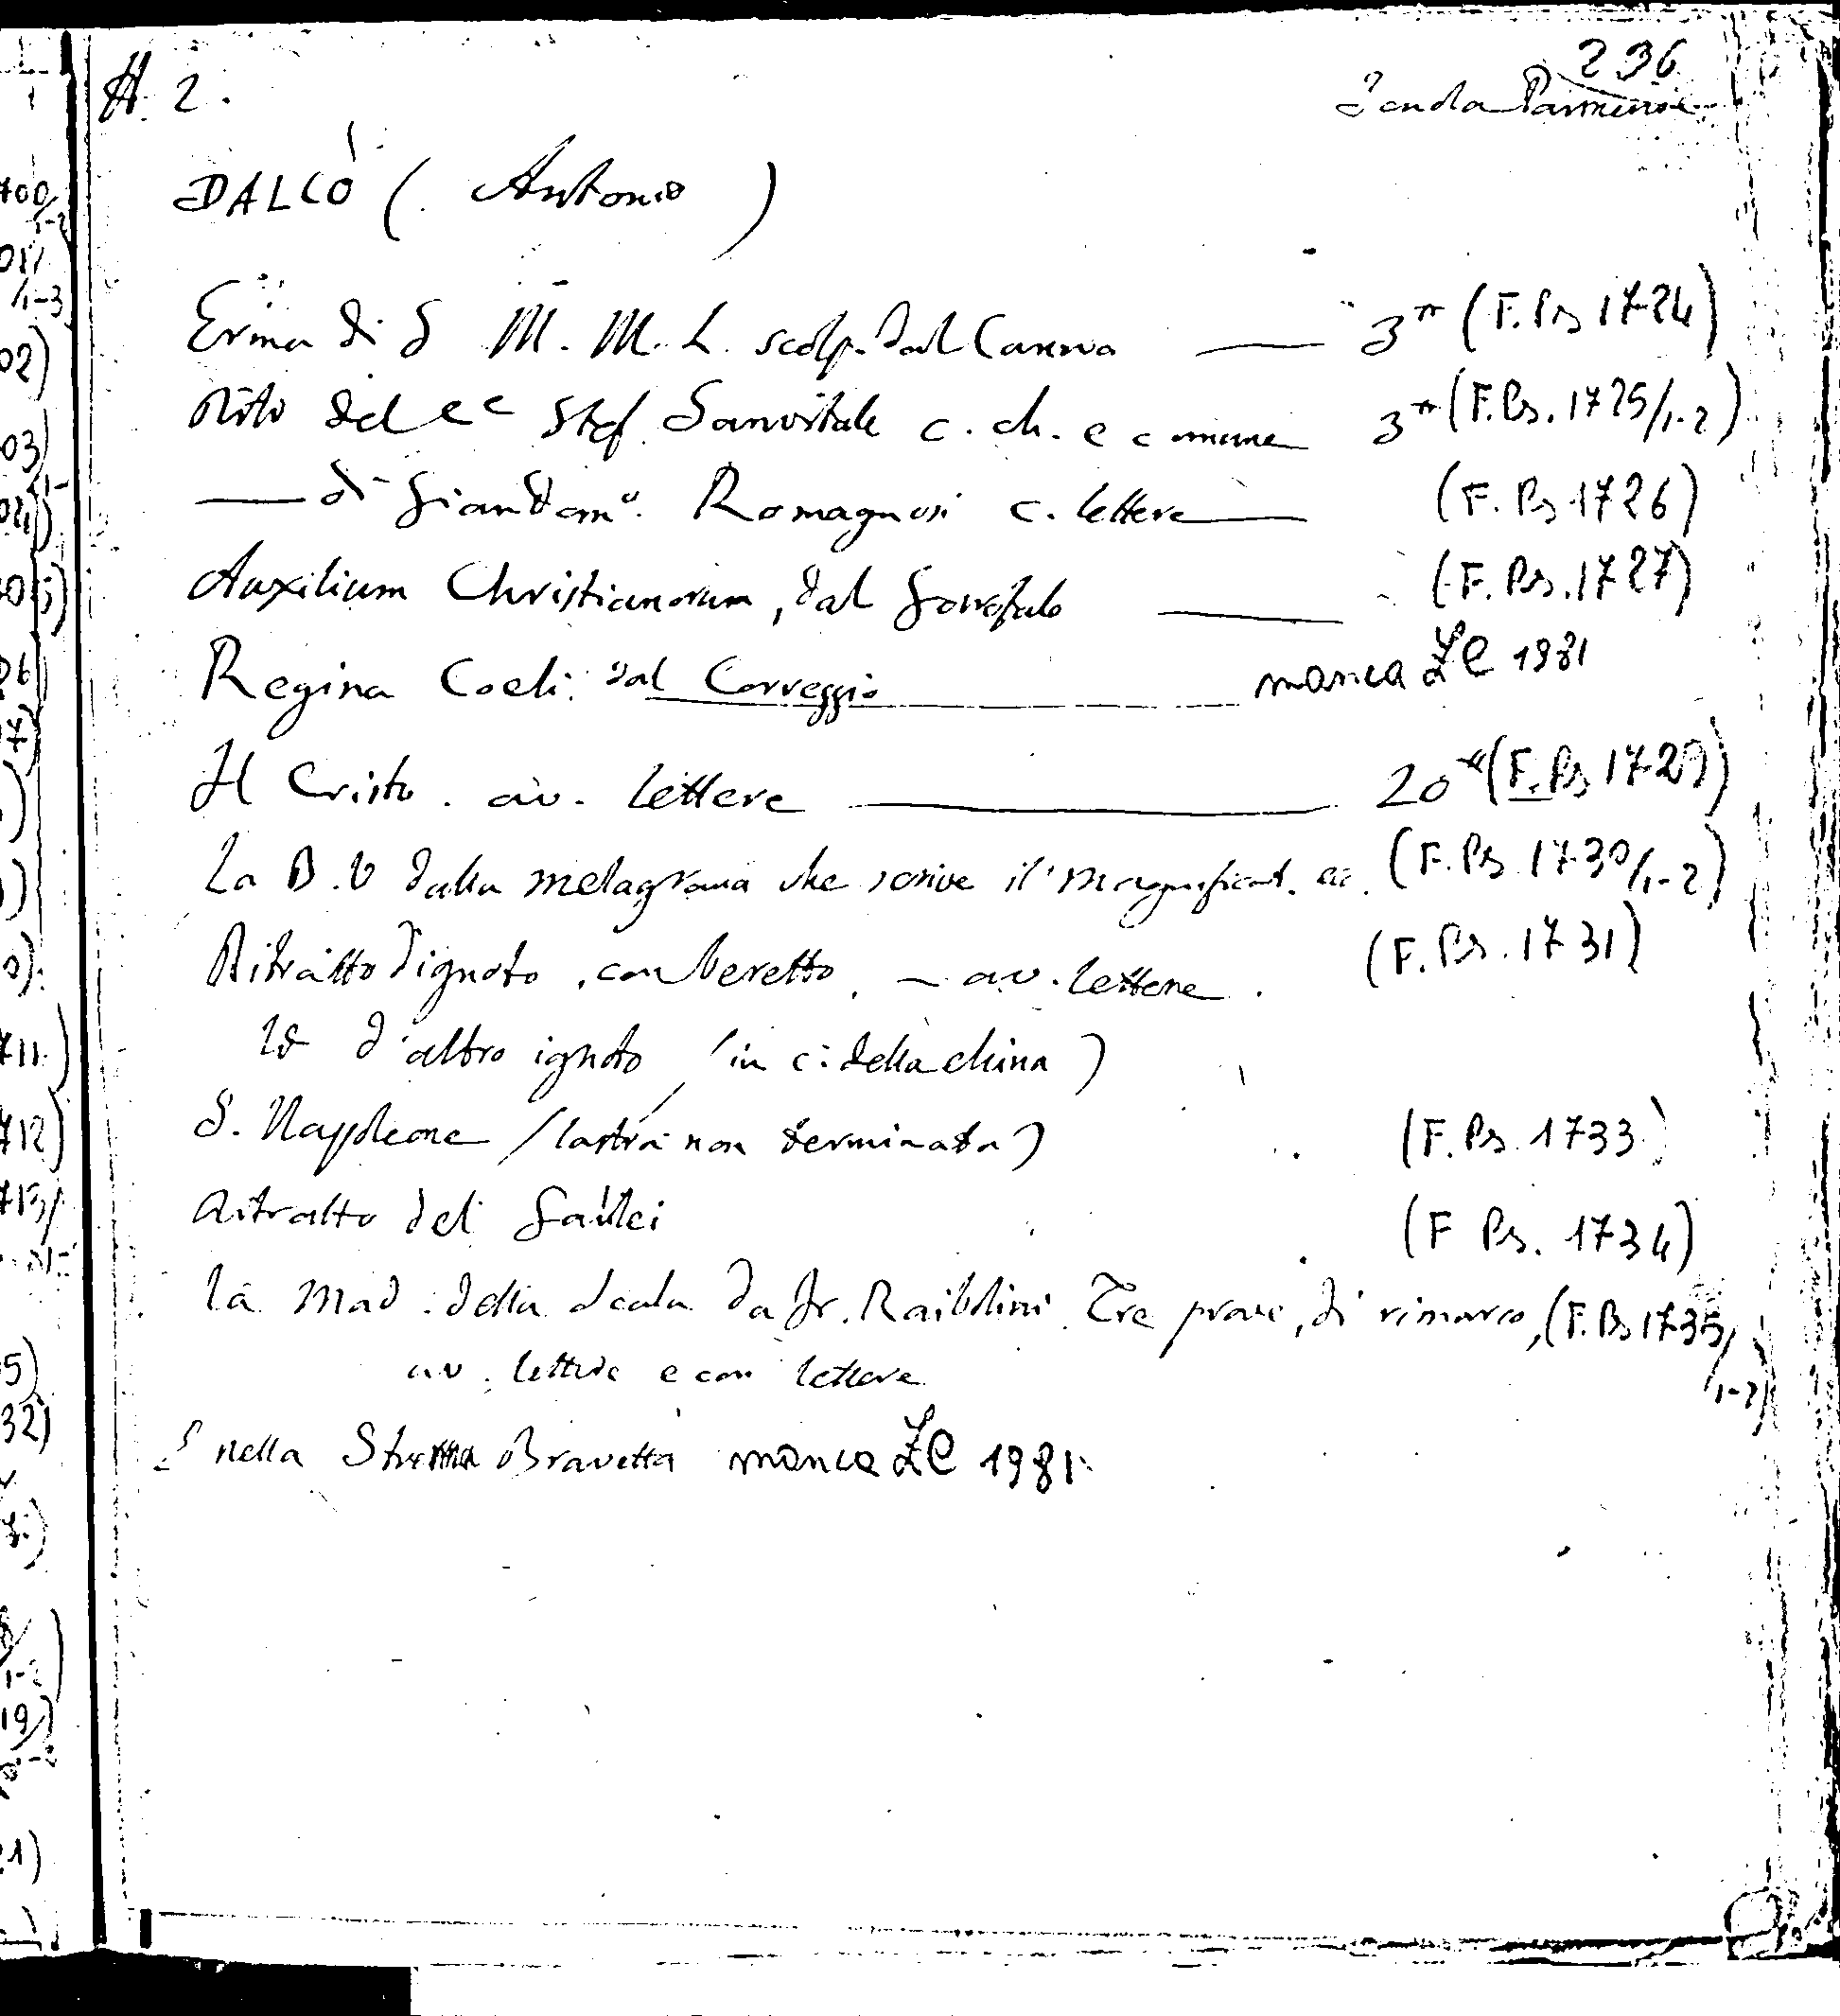 236
A. 2. Scuola Parmense
DALCÒ (Antonio)
Erma di S M. M. L. scolp. dal Canova — 3 (F. Ps 1724)
Rito del Stef. Sanvitale c. ch. e comune 3 (F. Ps. 1725/1-2)
— di Giandomo. Romagnosi c. lettere — (F. Ps 1726)
Auxilium Christianorum, dal Garofalo — (F. Ps. 1727)
Regina Coeli. dal Correggio — manca ZC 1981
Il Cristo. av. lettere — 20 (F. Ps 1729)
La B.V dalla melagrana che scrive il Magnificat. (F. Ps 1730/1-2)
Ritratto d'ignoto, con beretto. — av. lettere. (F. Ps. 1731)
Id d'altro ignoto (in c. della china)
S. Napoleone (lastra non terminata) (F. Ps. 1733)
Ritratto del Galilei (F Ps. 1734)
La Mad. della Scala da Fr. Raibolini. Tre prove, di rimarco, (F. Ps 1735/1-2)
av. lettere e con lettere
nella Bravetta manca ZC 1981